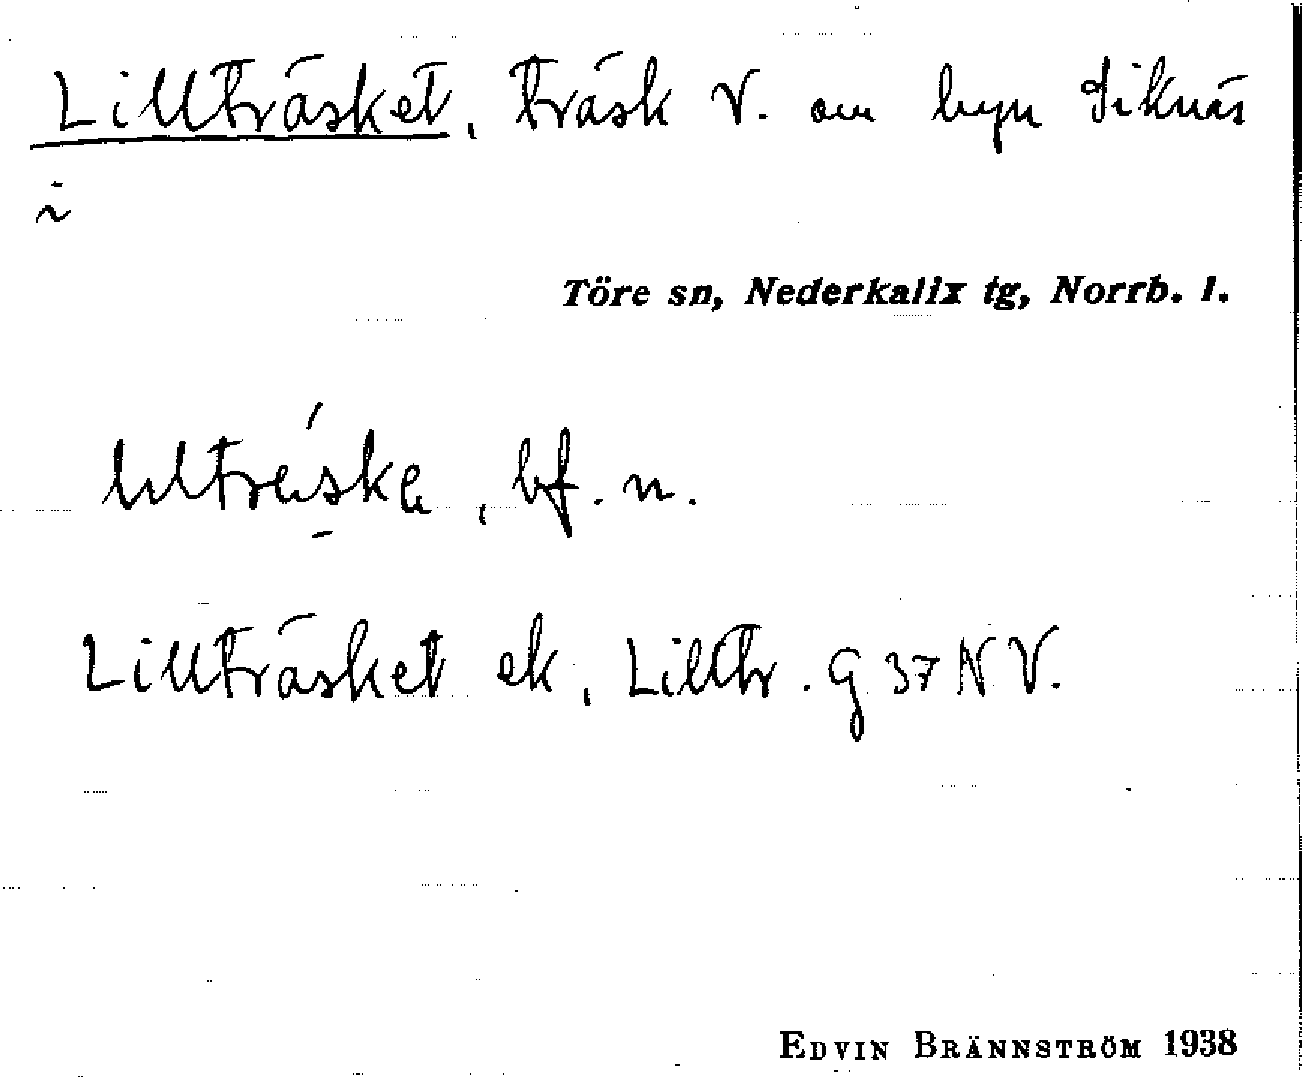 Lillträsket, träsk V. om byn Siknäs
i
Töre sn, Nederkalix tg, Norrb. l.
bf. n.
Lillträsket ek, Lilltr. G 37 N V.
EDVIN BRÄNNSTRÖM 1938